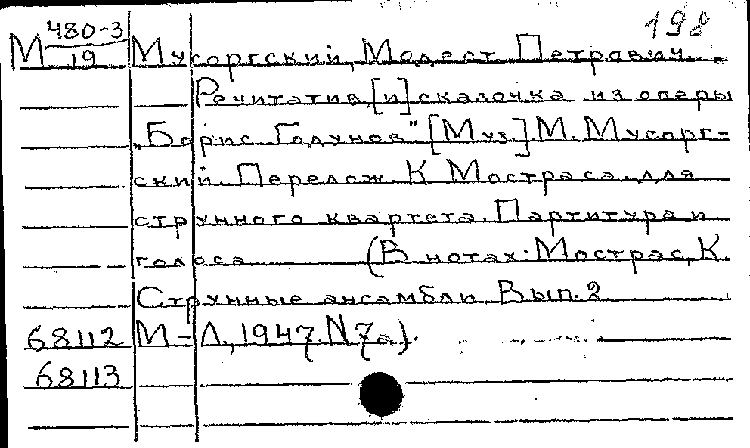 198
М 480-3/19 Мусоргский, Модест Петрович.
Речитатив [и] сказочка из оперы
„Борис Годунов" [Муз.] М. Мусорг-
ский. Перелож. К Мостраса для
струнного квартета. Партитура и
голоса (В нотах: Мострас, К.
Струнные ансамбли. Вып. 2
68112 М-Л, 1947. N 7а).
68113